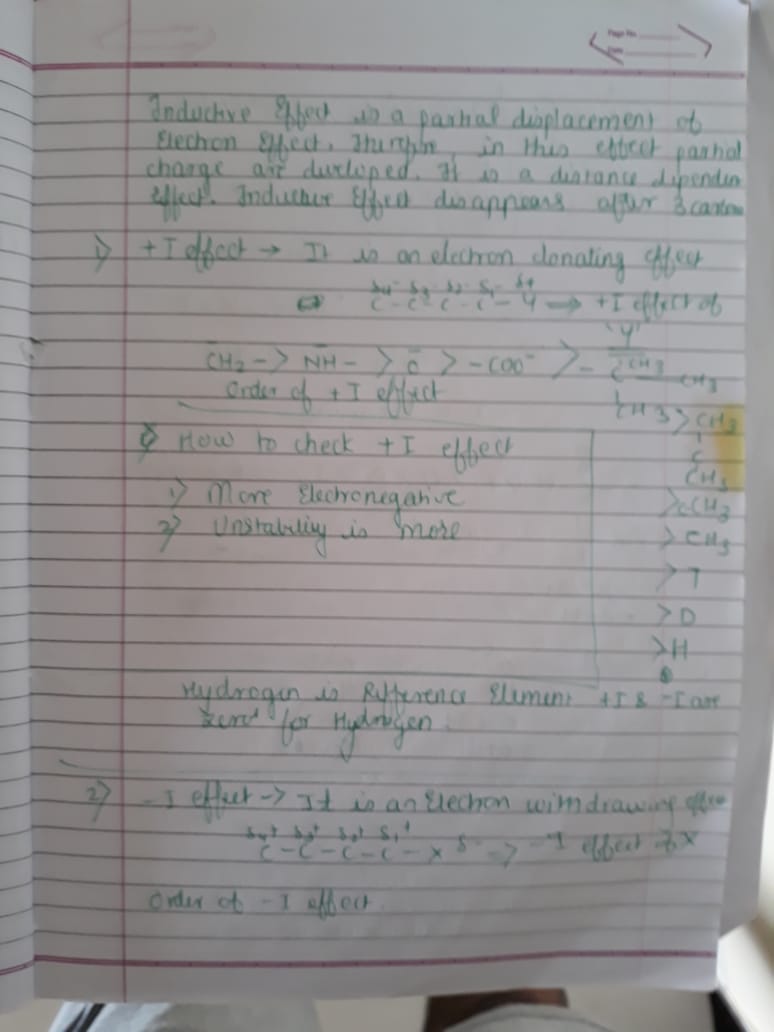 Page No.
Date
Inductive Effect is a partial displacement of
Electron Effect. Therefore, in this effect partial
charge are developed. It is a distance dependen
effect. Inductive Effect disappears after 3 carbon
1) +I effect → It is an electron donating effect
δ4- δ3- δ2- δ1- δ+
C - C - C - C - Y ⟹ +I effect of
'Y'
C̄H2 - > N̄H - > Ō > - COO⁻ > -
C CH3
CH3
CH3
Order of +I effect
> CH3
C
CH3
How to check +I effect
1) More Electronegative
2) Unstability is more
> CH3
> T
> D
> H
Hydrogen is Refference Element +I & -I are
zero for Hydrogen.
2) -I effect → It is an Electron withdrawing effec
δ4+ δ3+ δ2+ δ1+
C - C - C - C - X δ- → -I effect of X
Order of -I effect.